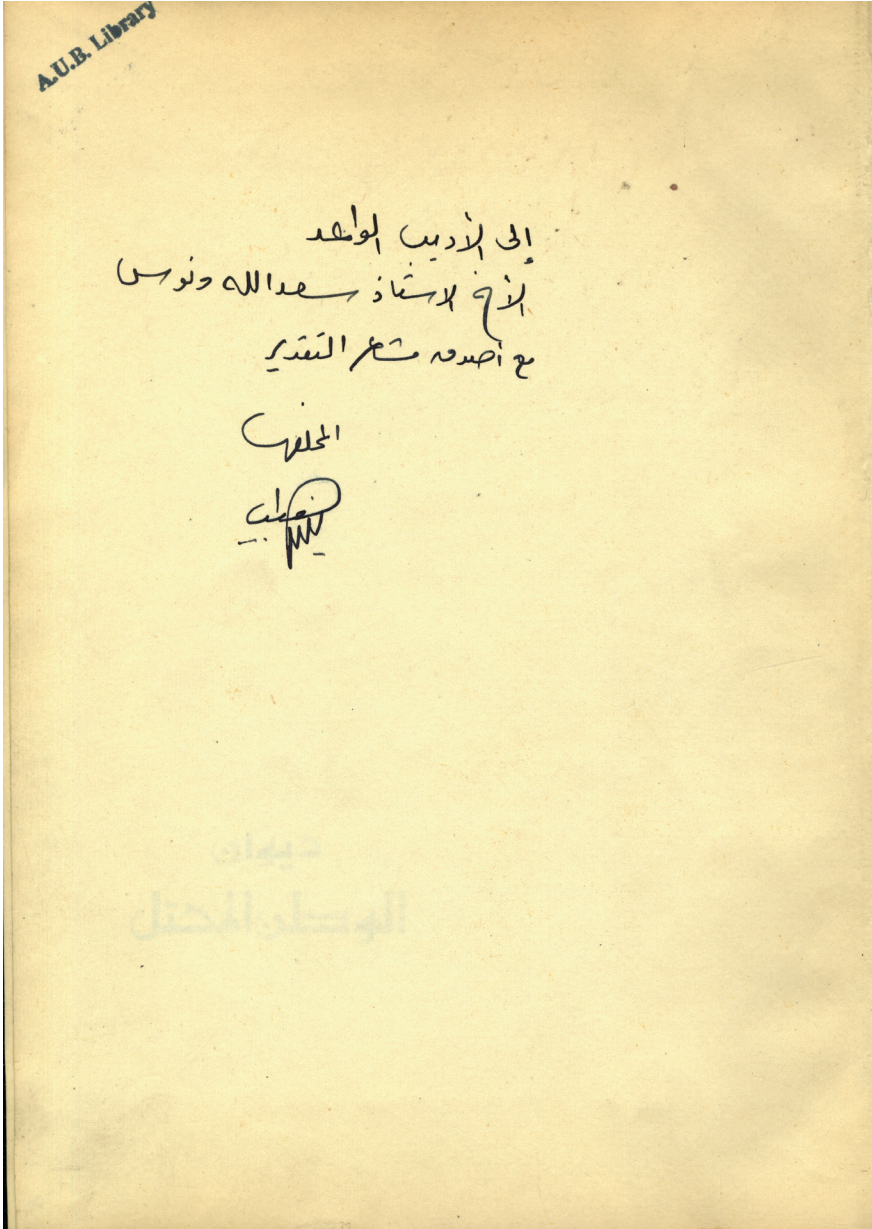 A.U.B. Library
إلى الأديب الواعد
الأخ الاستاذ سعدالله ونوس
مع أصدق مشاعر التقدير
المخلص
ديوان
الوطن المحتل